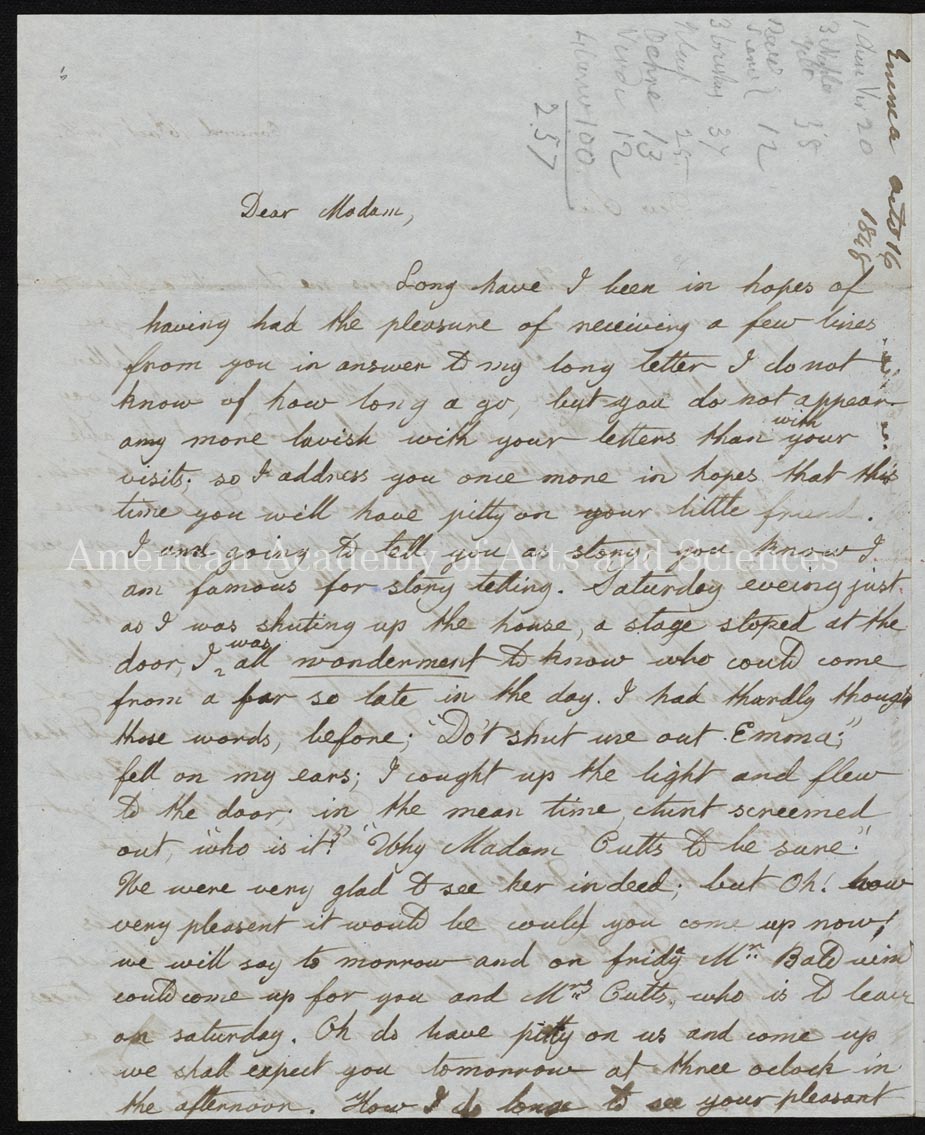 Emma Octo 16
1846
12
13
12
100
2.57
Dear Madam,
Long have I been in hopes of
having had the pleasure of receiving a few lines
from you in answer to my long letter I do not
know of how long a go, but you do not appear
any more lavish with your letters than with your
visits; so I address you once more in hopes that this
time you will have pitty on your little friend.
I am going to tell you as story you know I
am famous for story telling. Saturday eveing just
as I was shuting up the house, a stage stoped at the
door, I was all wonderment to know who could come
from a far so late in the day. I had thardly though
those words, before; "Do't shut me out Emma;"
fell on my ears; I cought up the light and flew
to the door; in the mean time, Aunt screemed
out, "who is it?" "Why Madam Cutts to be sure."
We were very glad to see her indeed; but Oh! how
very pleasent it would be could you come up now!
we will say to morrow and on friday Mr Baldwin
could come up for you and Mrs Cutts, who is to leave
on saturday. Oh do have pitty on us and come up
we shall expect you tomorrow at three oclock in
the afternoon. How I do long to see your pleasant
American Academy of Arts and Sciences